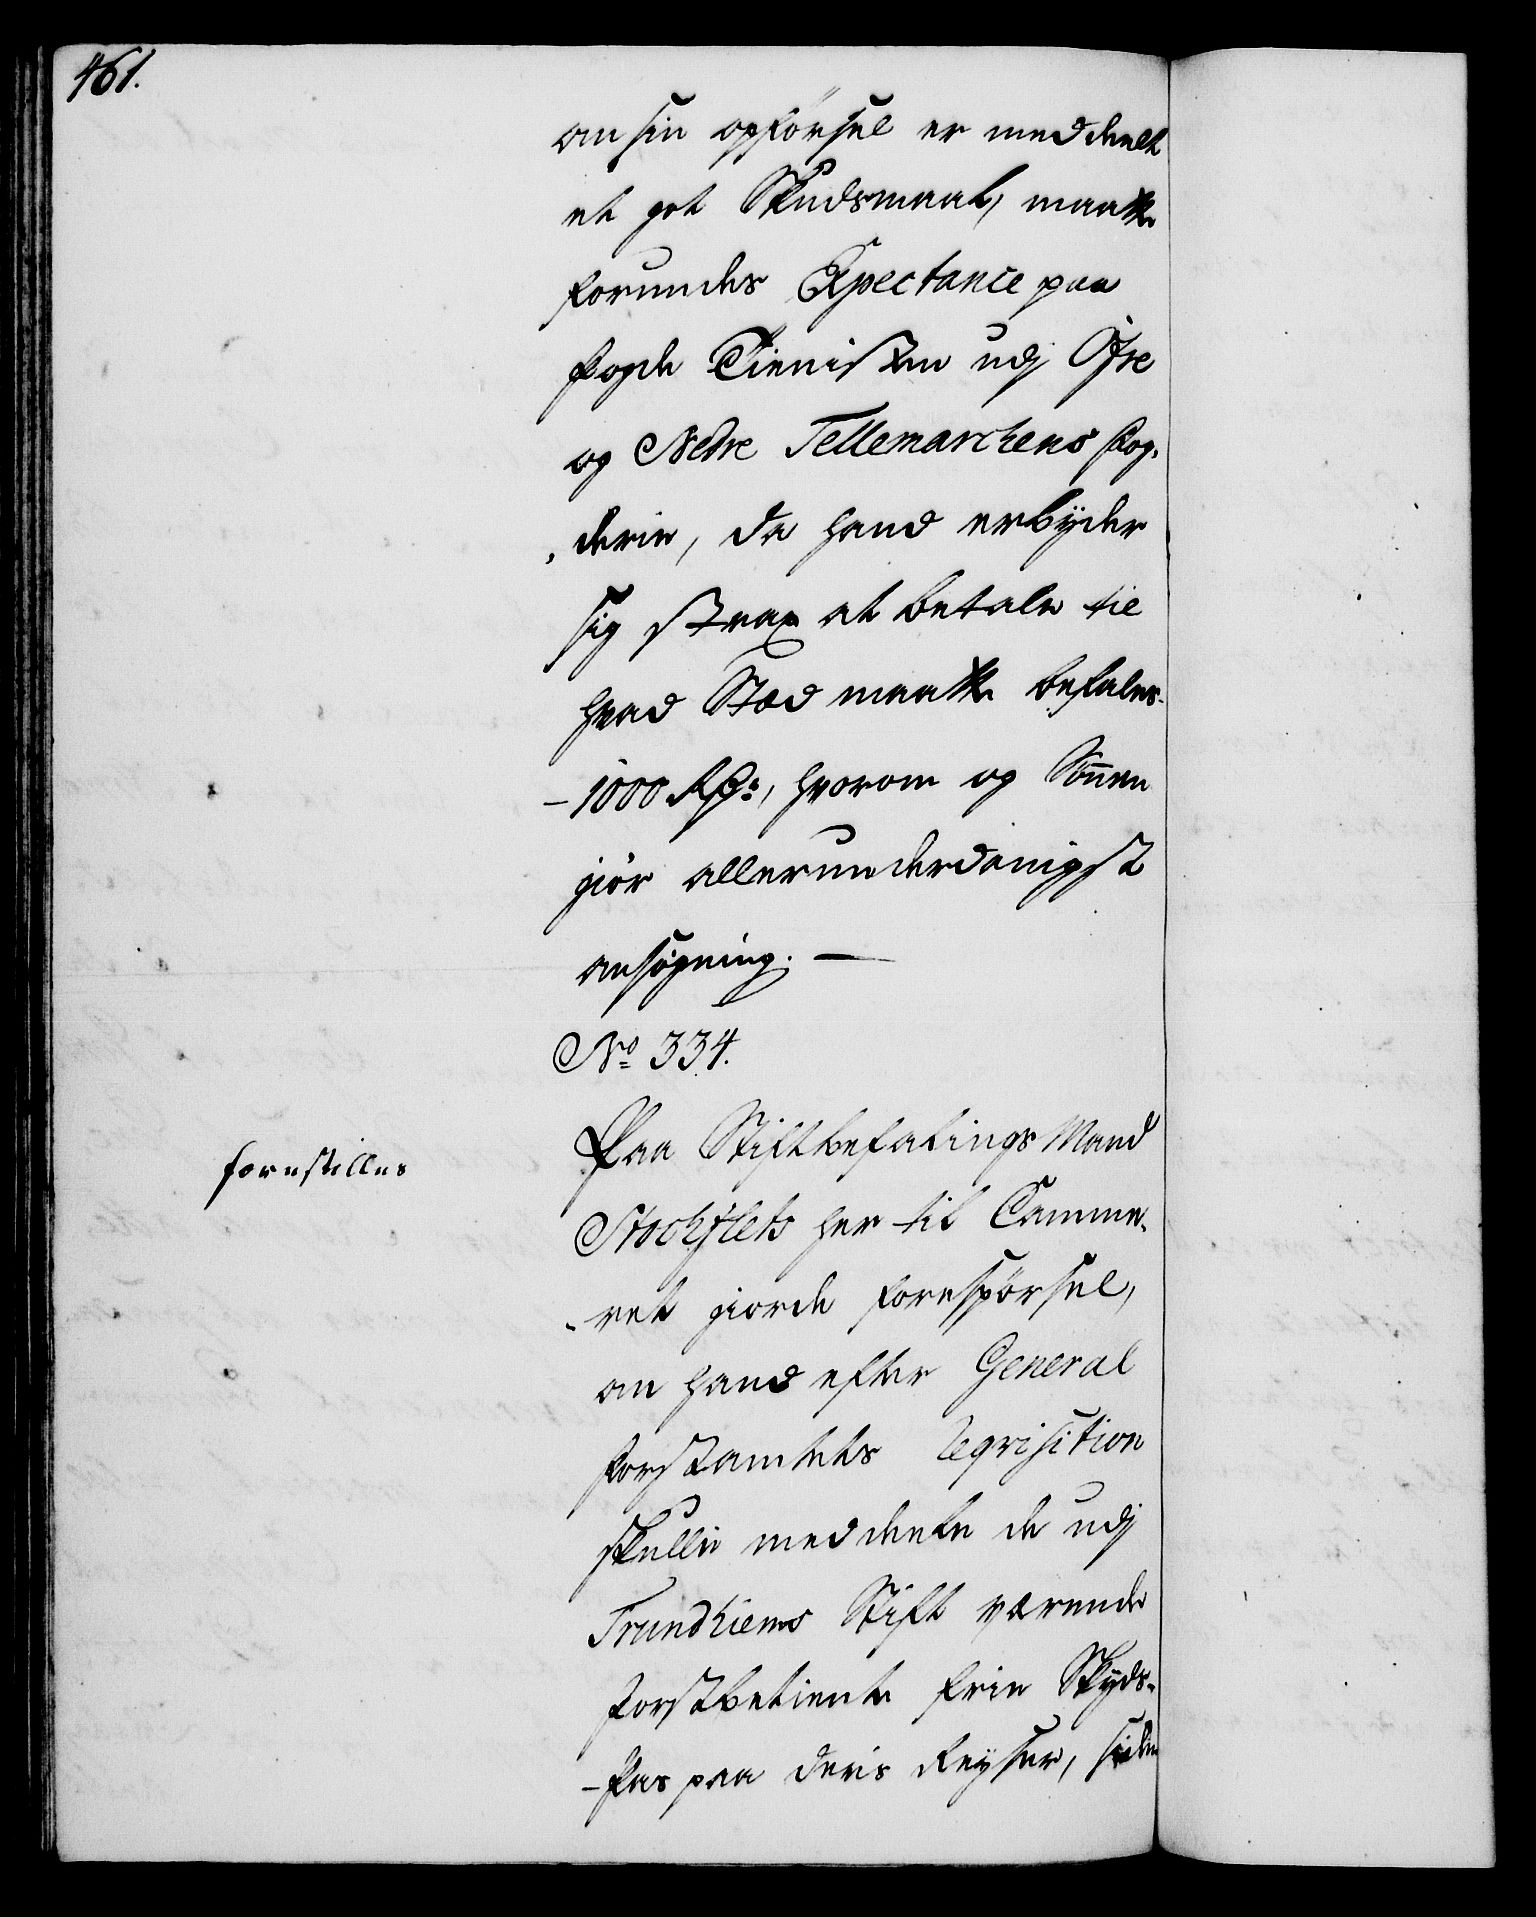 461.
om sin opförsel er meddeelt
et got Skudsmaal, maatte
forundes Expectance paa
foged Tienisten udj Öfre
og Nedre Tellemarchens fog-
derie, da hand erbyder
sig strax at betale til
hvad Stæd maatte befales
1000 Rdr, hvorom og Sönnen
giör allerunderdanigst
ansögning. —
No 334.
forestilles
Paa Stiftbefalings Mand
Stochflets her til Camme-
ret giorde forespörsel,
om hand efter General
forstamtets reqvisition
skulle meddeele de udj
Trundhiems Stift værende
forstbetiente frie Skyds-
Pas paa deris Reyser, siden